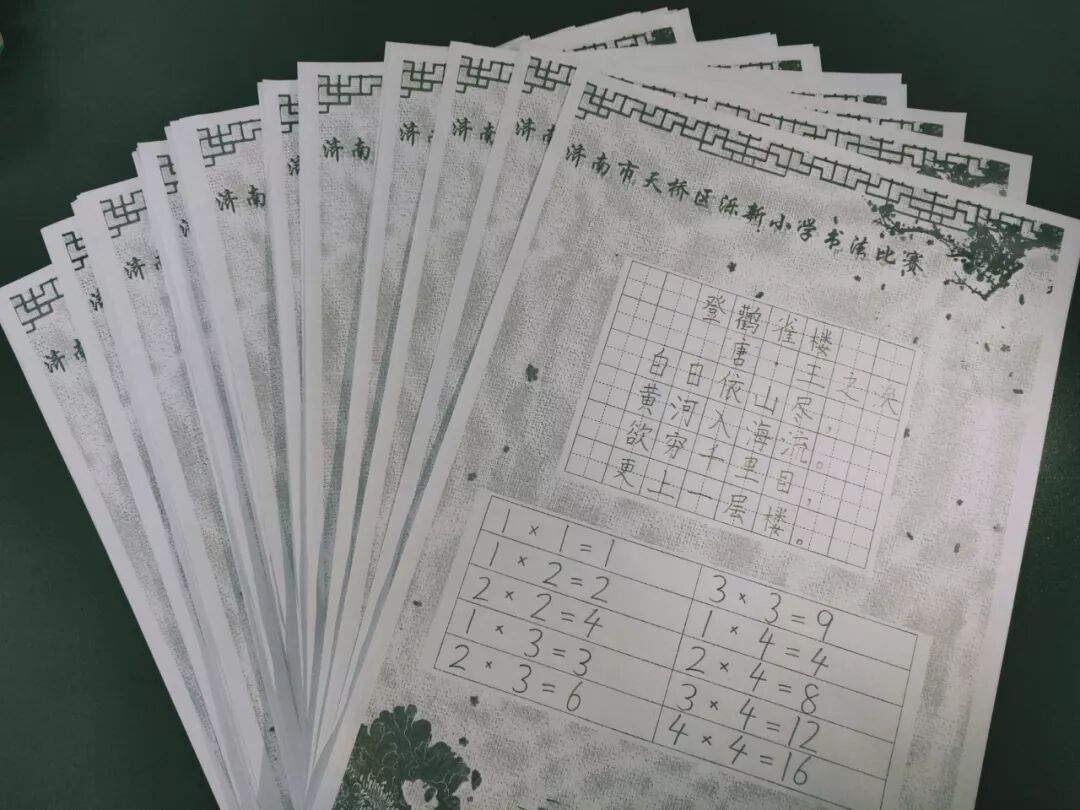 济南
济南
济南
济
济南
济南
济南
济南
济南
济南
济南市天桥区泺新小学书法比赛
登鹳雀楼
唐·王之涣
白日依山尽，
黄河入海流。
欲穷千里目，
更上一层楼。
1×1=1
1×2=2
2×2=4
1×3=3
2×3=6
3×3=9
1×4=4
2×4=8
3×4=12
4×4=16